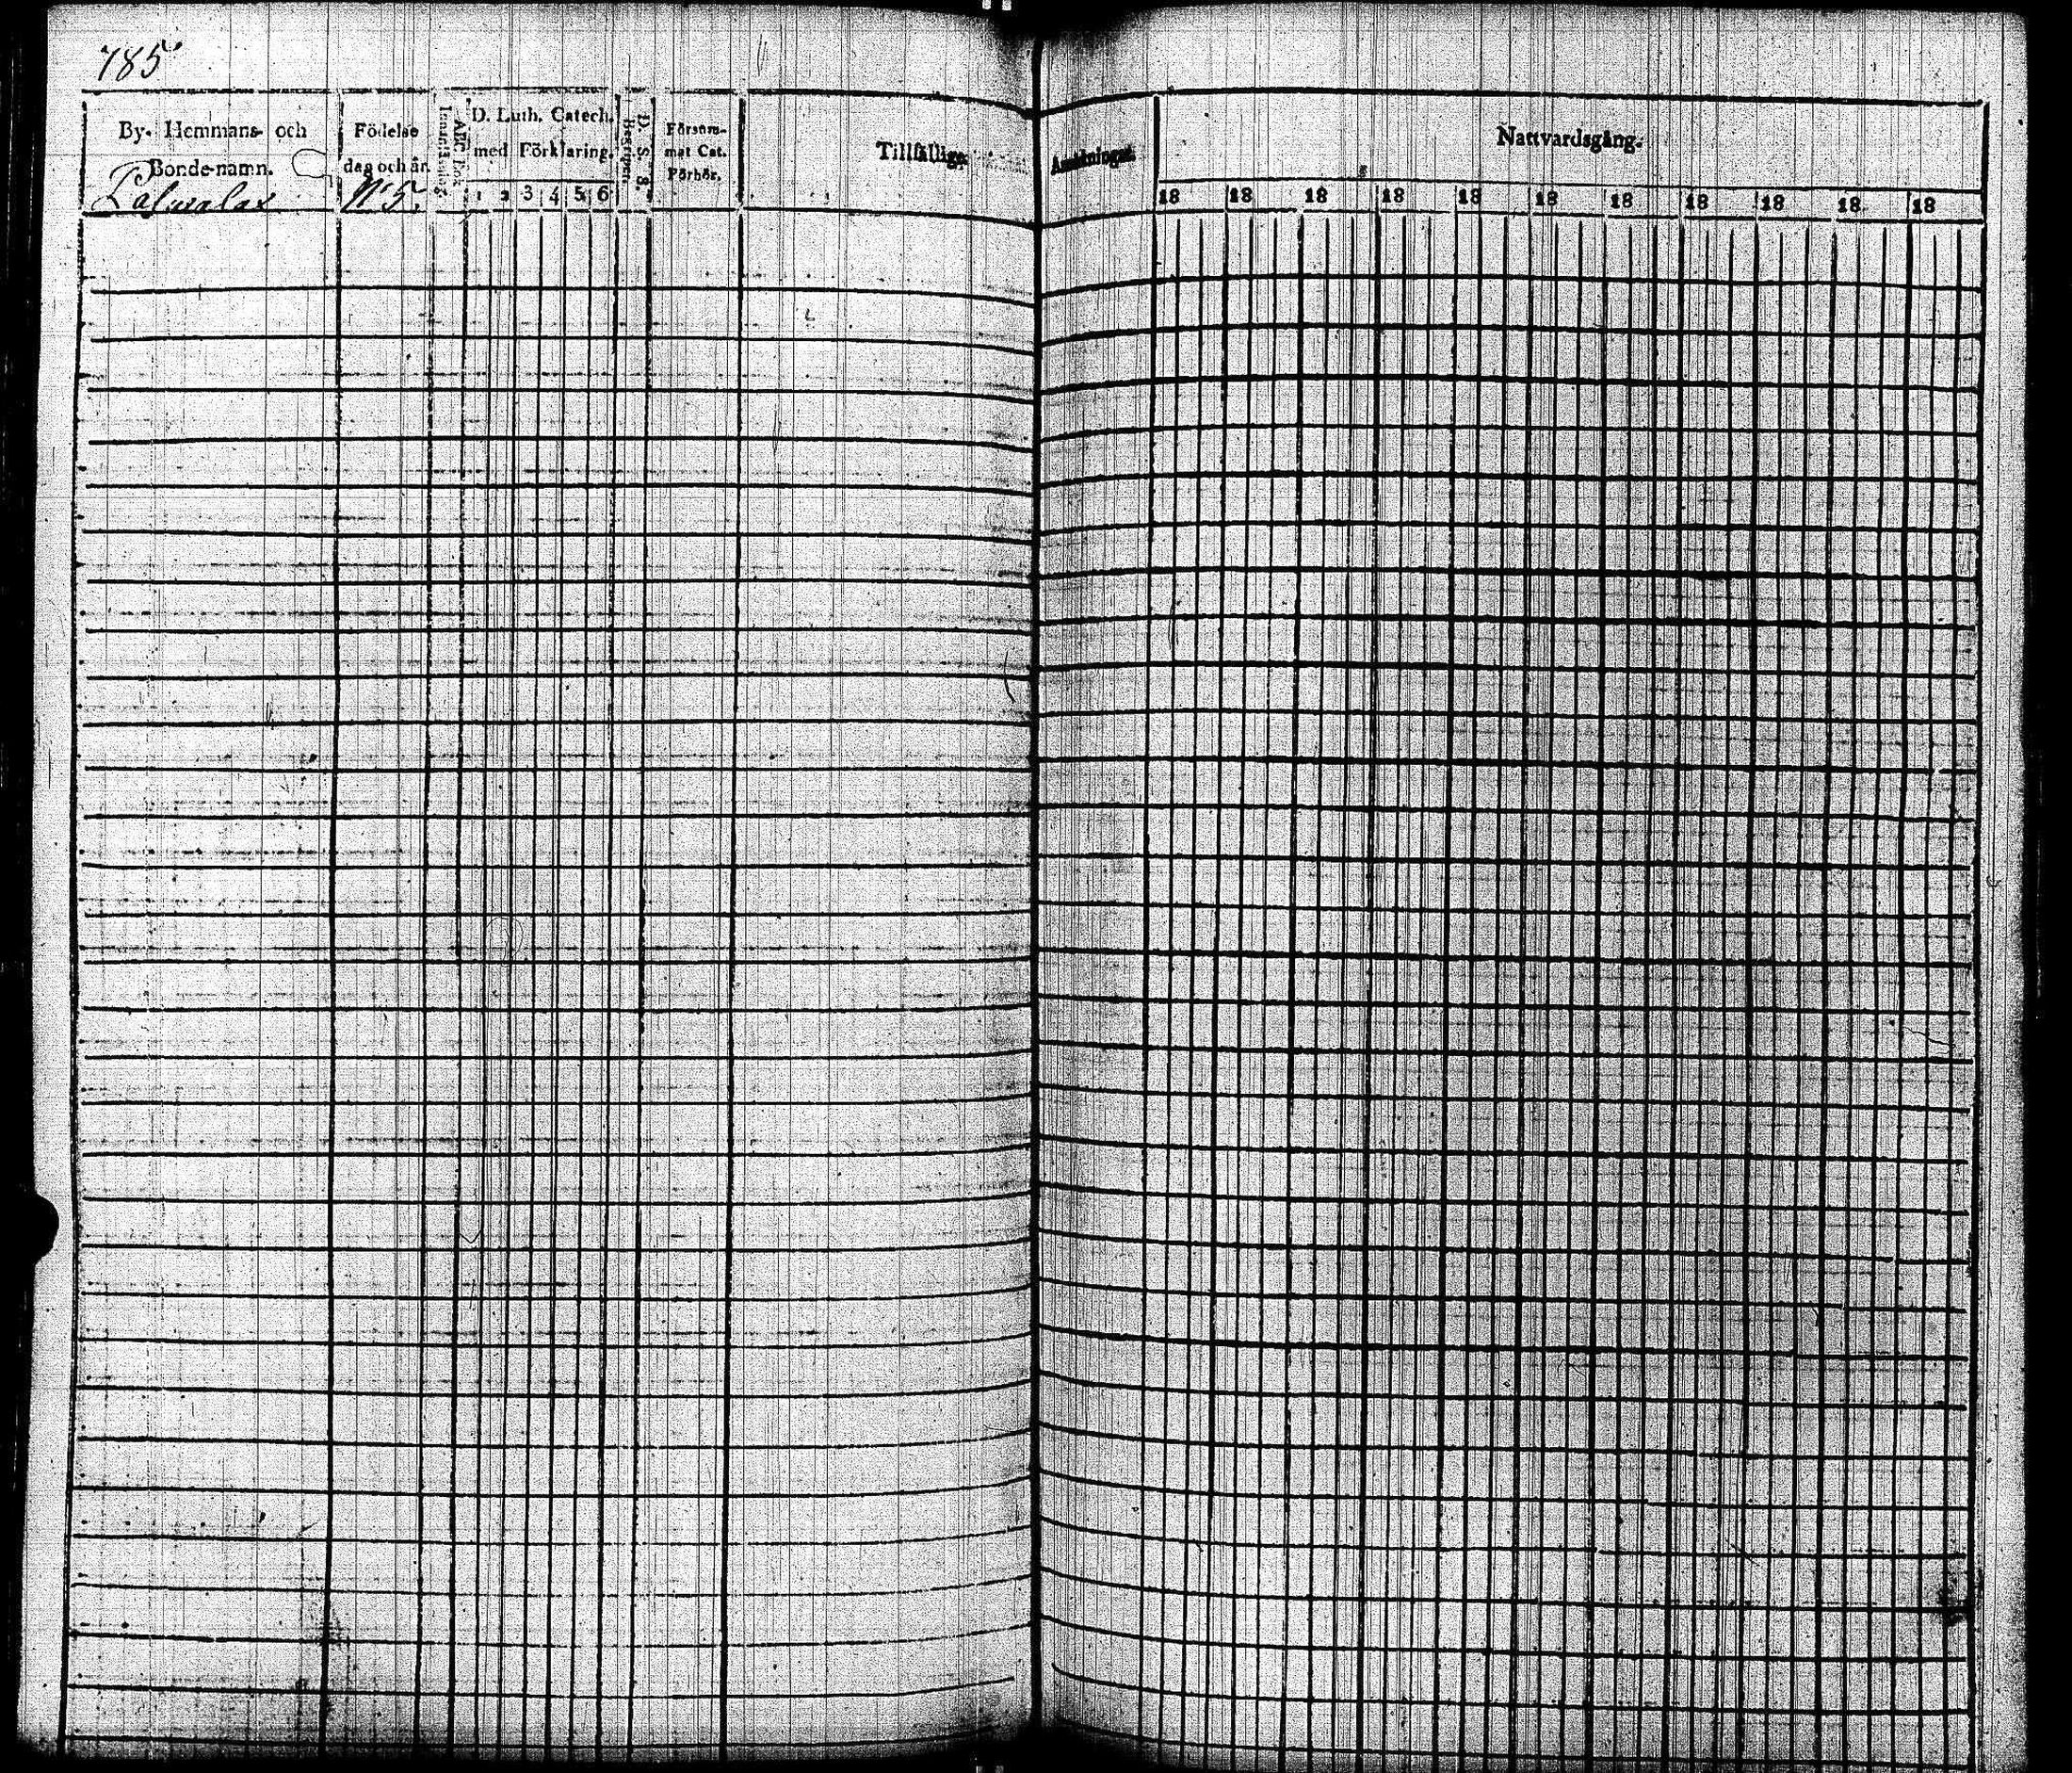 785
By- Hemmans- och
Bonde-namn.
Palwalax
Födelse
dag och år.
N:o 5.
ABC Bok
D. Luth. Catech.
med Förklaring.
1 2 3 4 5 6
D. S. S.
Begrepet.
Försum-
mat Cat.
Förhör.
Tillfällige
Anmärkningar.
Nattvardsgång.
18 18 18 18 18 18 18 18 18 18 18